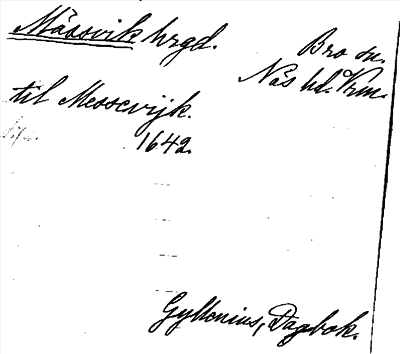 Mässvik hrgd.
Bro sn.
Näs hd. Vrm.
til Messevijk.
1642.
Gyllenius, Dagbok.